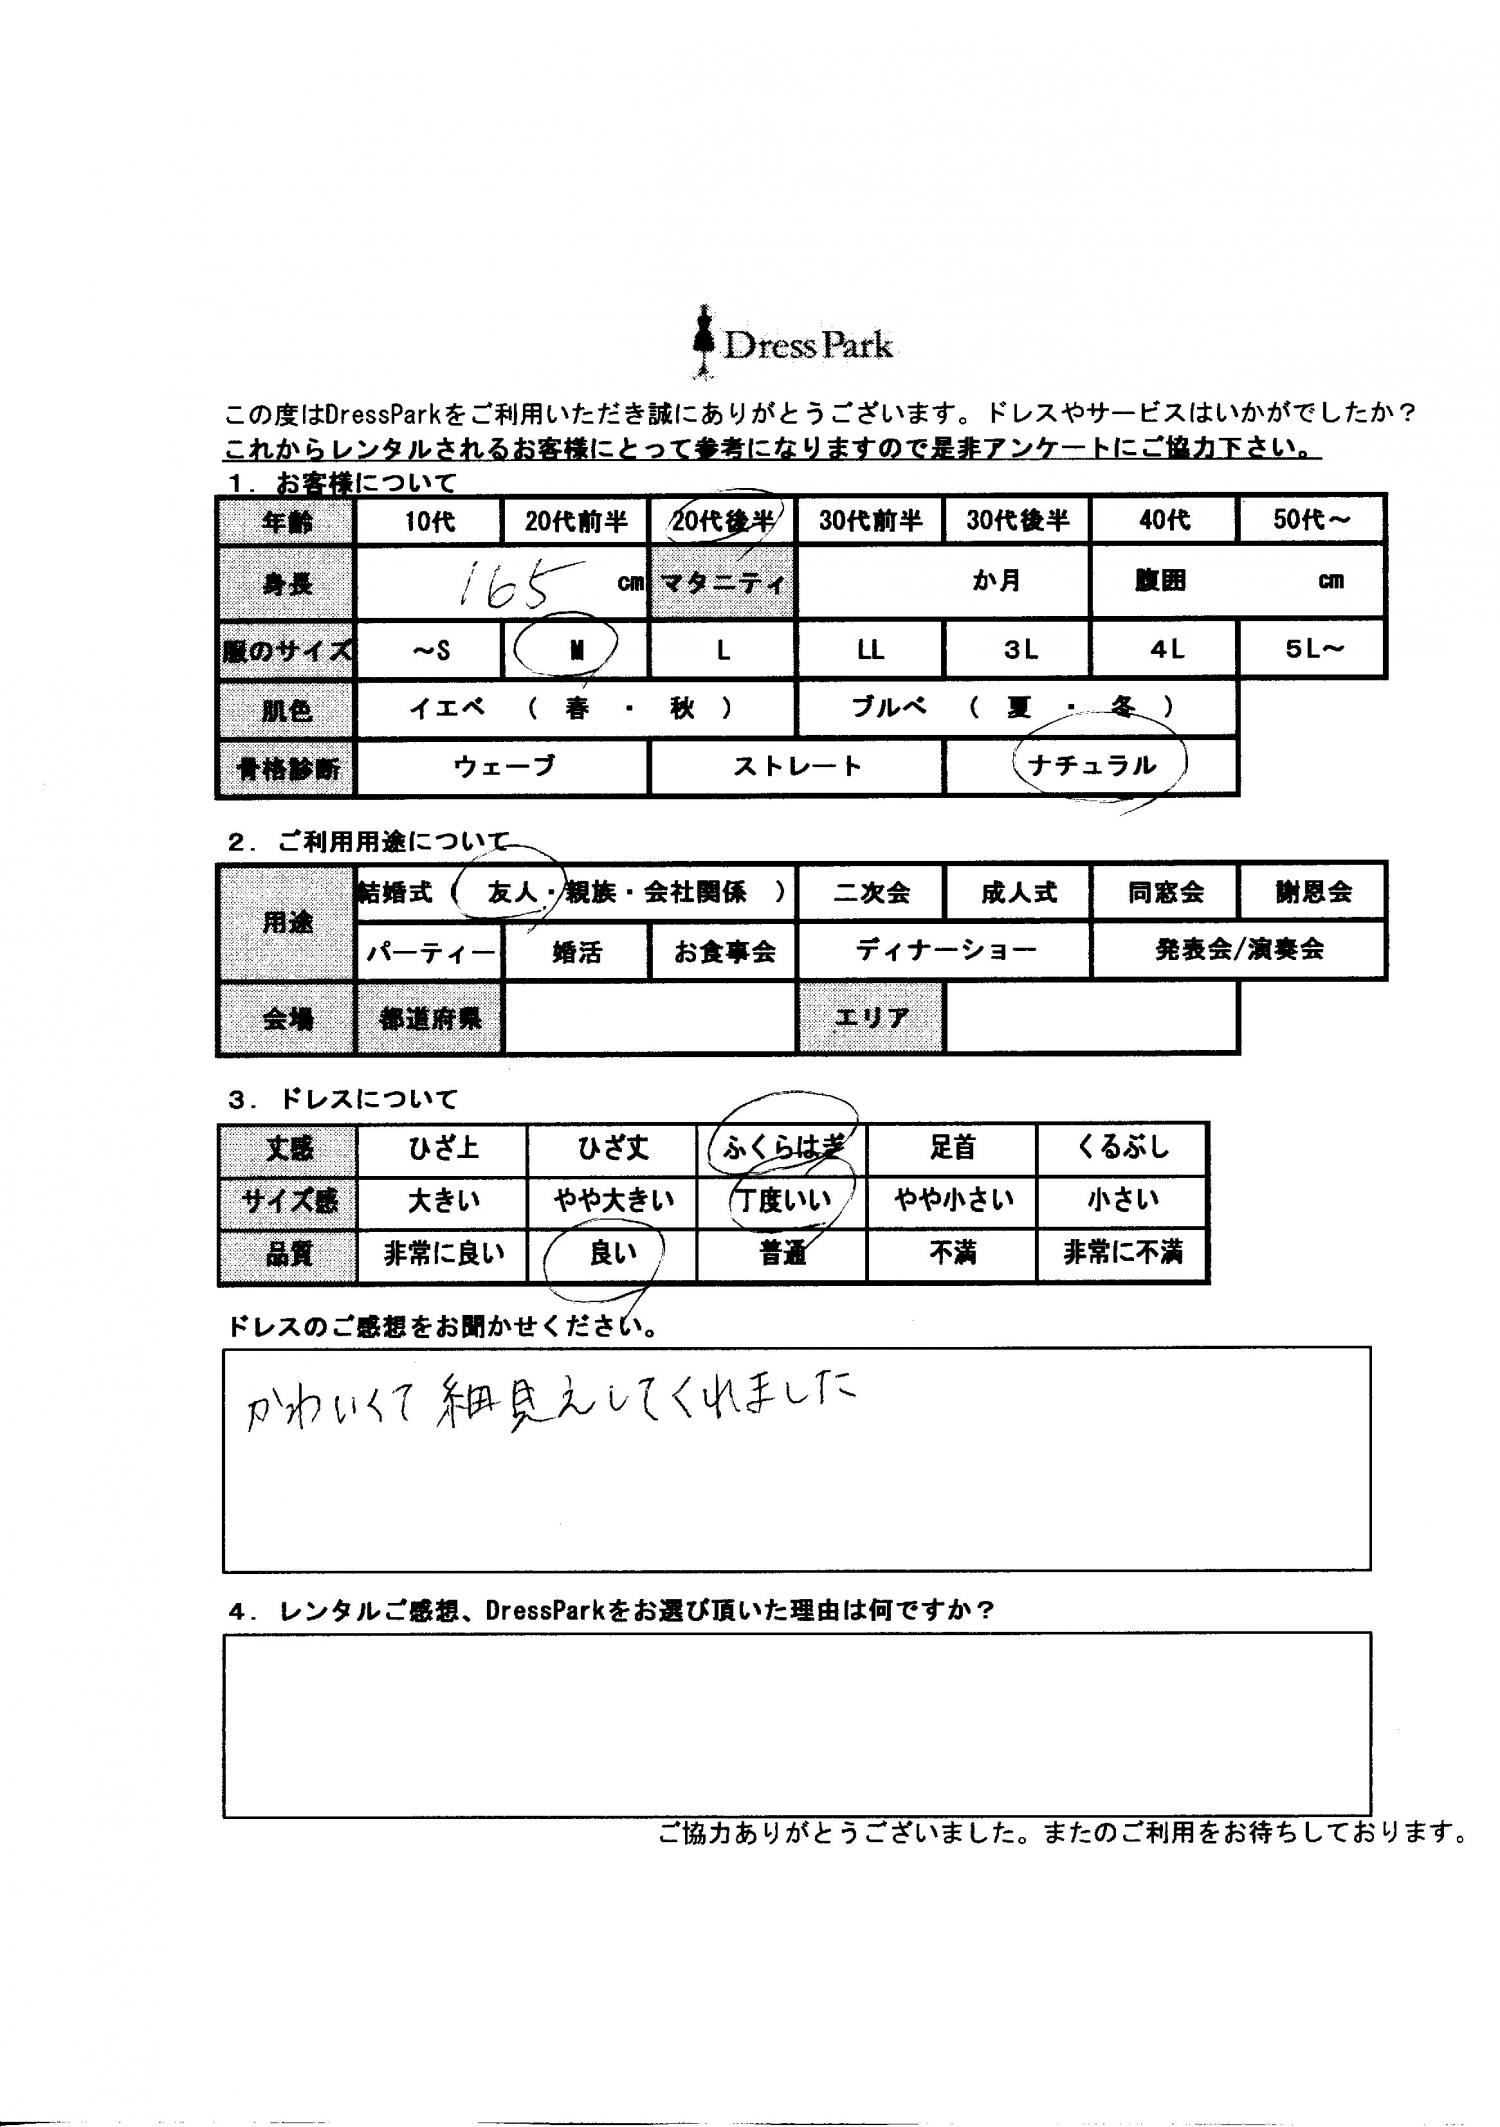 Dress Park
この度はDressParkをご利用いただき誠にありがとうございます。ドレスやサービスはいかがでしたか？
これからレンタルされるお客様にとって参考になりますので是非アンケートにご協力下さい。
1. お客様について
年齢 10代 20代前半 20代後半 30代前半 30代後半 40代 50代～
身長 165 cm マタニティ か月 腹囲 cm
服のサイズ ～S M L LL 3L 4L 5L～
肌色 イエベ （ 春 ・ 秋 ） ブルベ （ 夏 ・ 冬 ）
骨格診断 ウェーブ ストレート ナチュラル
2. ご利用用途について
用途 結婚式（ 友人・親族・会社関係 ） 二次会 成人式 同窓会 謝恩会
パーティー 婚活 お食事会 ディナーショー 発表会/演奏会
会場 都道府県 エリア
3. ドレスについて
丈感 ひざ上 ひざ丈 ふくらはぎ 足首 くるぶし
サイズ感 大きい やや大きい 丁度いい やや小さい 小さい
品質 非常に良い 良い 普通 不満 非常に不満
ドレスのご感想をお聞かせください。
かわいくて細見えしてくれました
4. レンタルご感想、DressParkをお選び頂いた理由は何ですか？
ご協力ありがとうございました。またのご利用をお待ちしております。